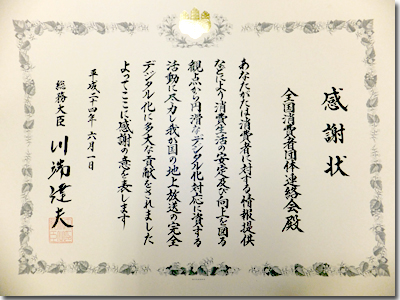 感謝状
全国消費者団体連絡会殿
あなたがたは消費者に対する情報提供
などにより消費生活の安定及び向上を図る
観点から円滑なデジタル化対応に資する
活動に尽力し我が国の地上放送の完全
デジタル化に多大な貢献をされました
よってここに感謝の意を表します
平成二十四年六月一日
総務大臣 川端達夫